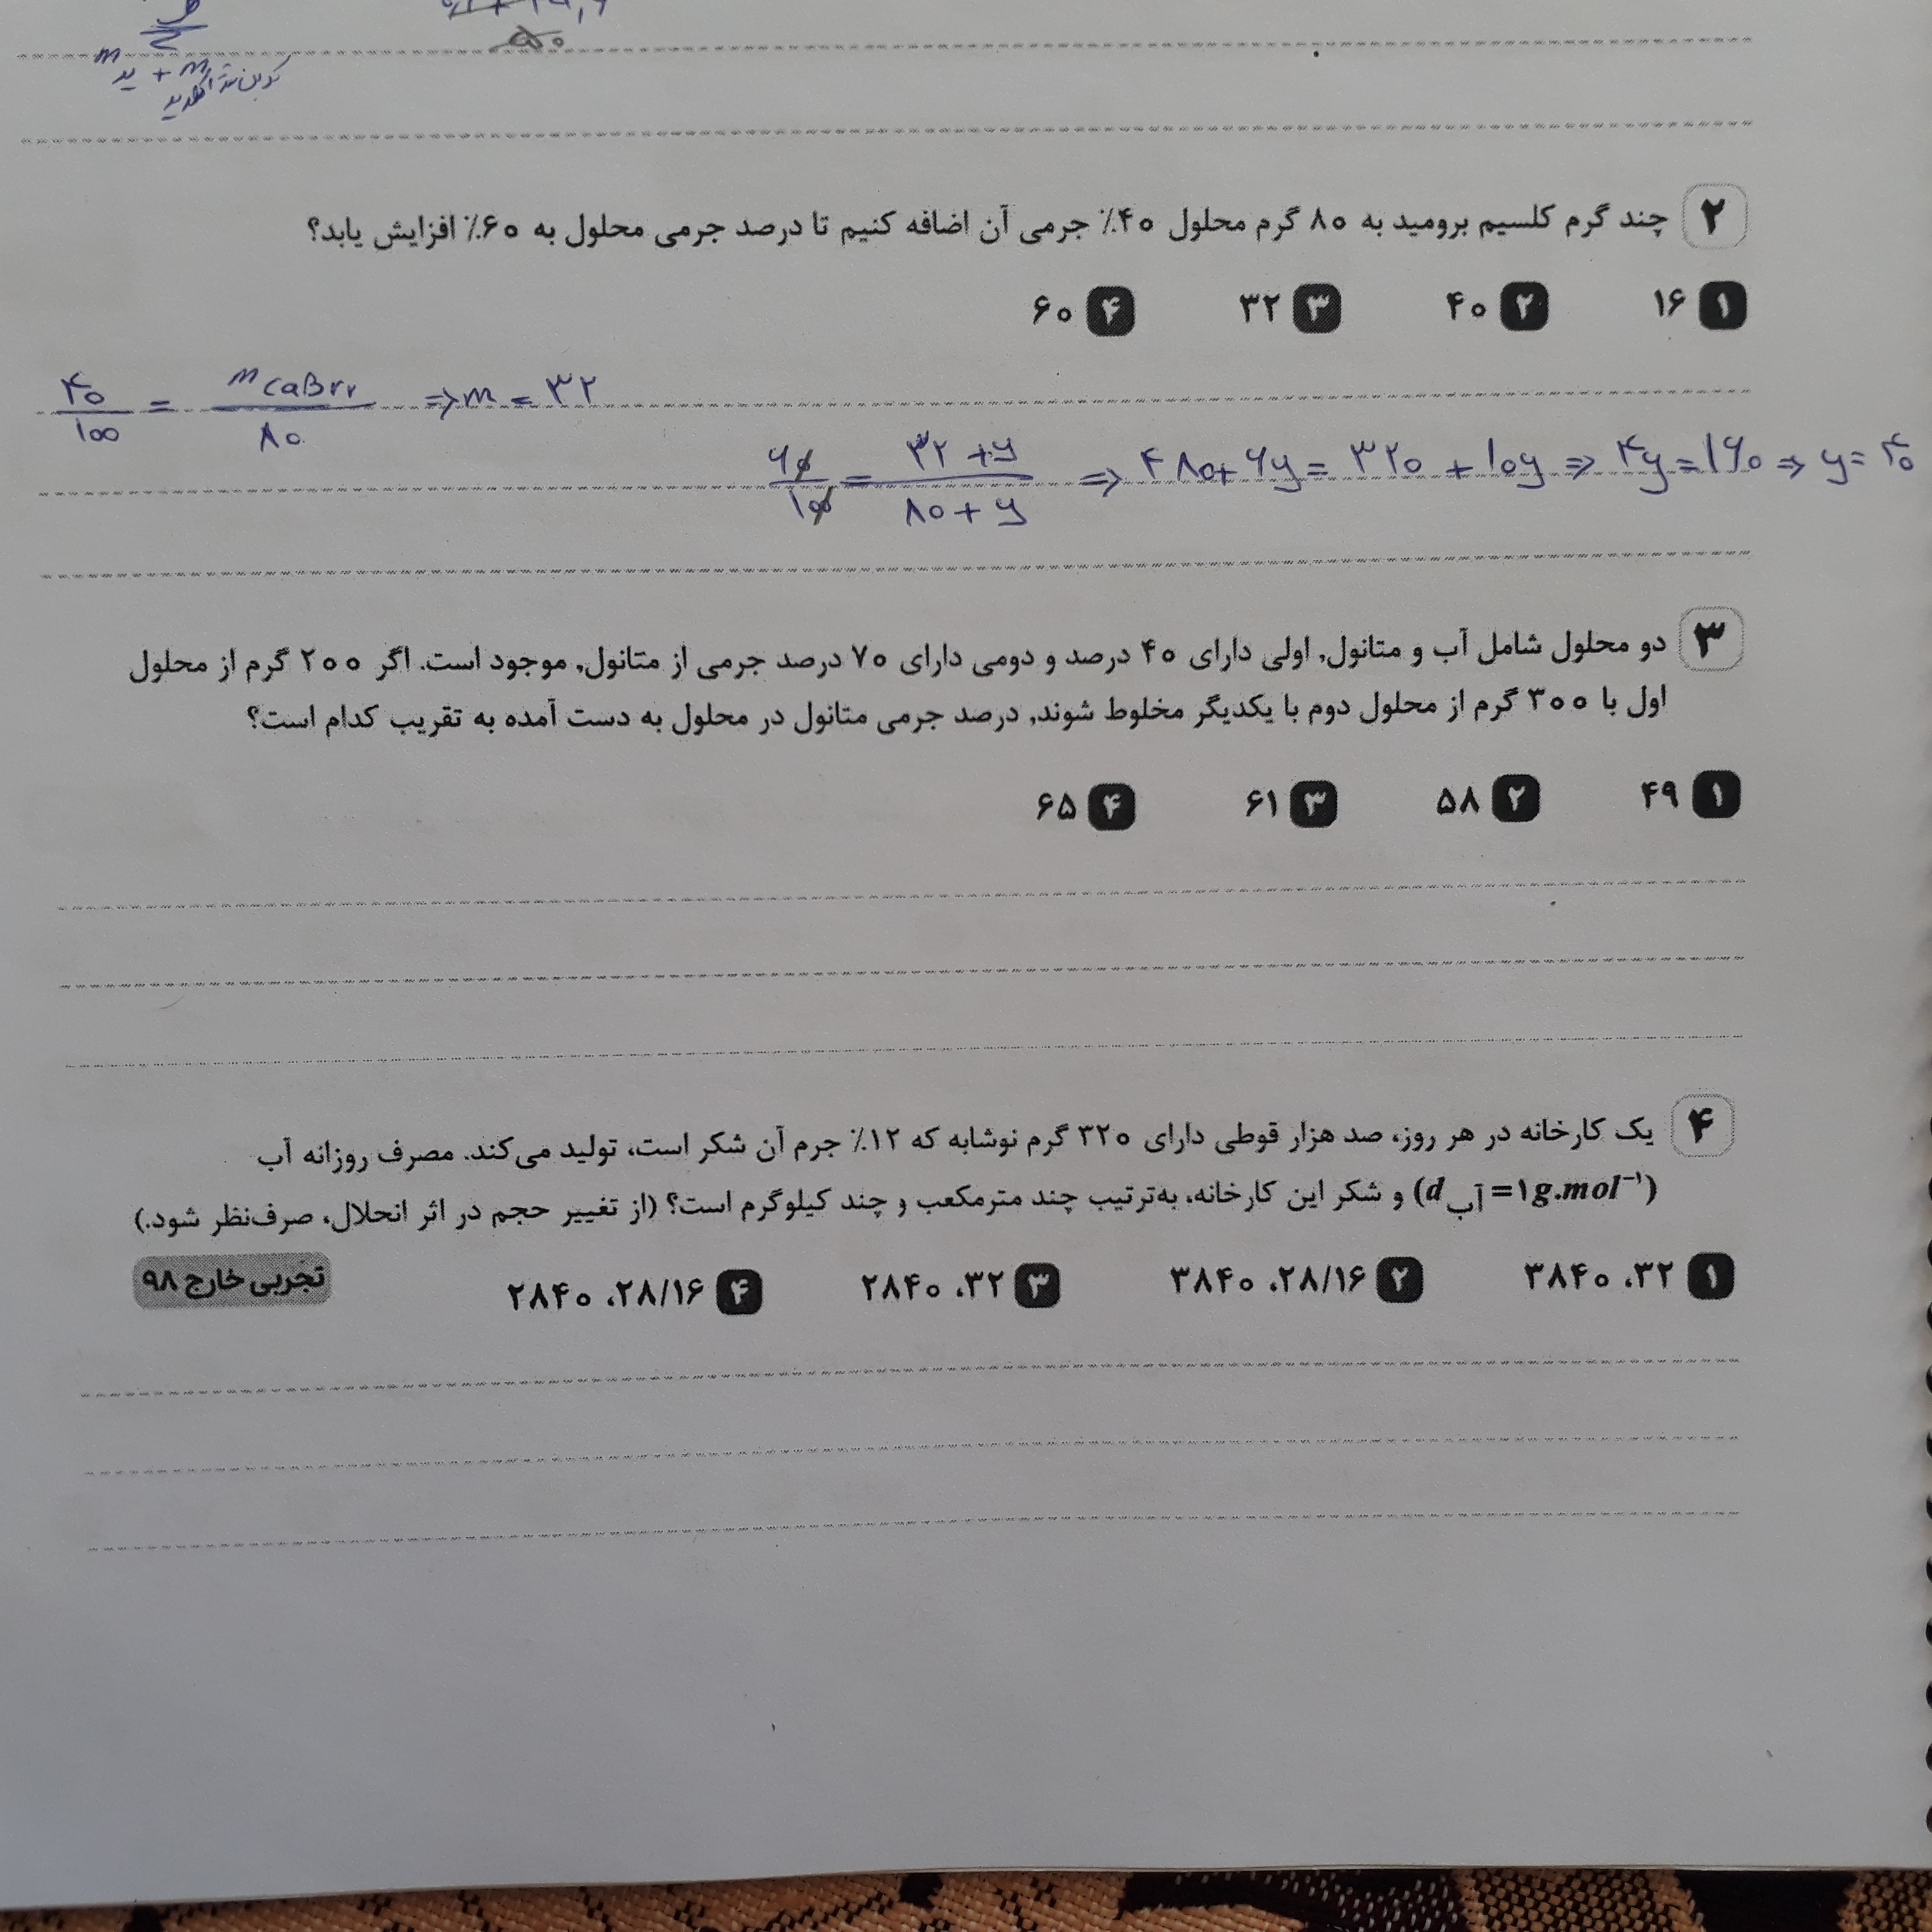 m + m
۵۰
۲ چند گرم کلسیم برومید به ۸۰ گرم محلول ۴۰٪ جرمی آن اضافه کنیم تا درصد جرمی محلول به ۶۰٪ افزایش یابد؟
۱ ۱۶ ۲ ۴۰ ۳ ۳۲ ۴ ۶۰
۴۰/۱۰۰ = m CaBr۲/۸۰ => m = ۳۲
۶۰/۱۰۰ = ۳۲ + y/۸۰ + y => ۴۸۰ + ۶y = ۳۲۰ + ۱۰y => ۴y = ۱۶۰ => y = ۴۰
۳ دو محلول شامل آب و متانول, اولی دارای ۴۰ درصد و دومی دارای ۷۰ درصد جرمی از متانول, موجود است. اگر ۲۰۰ گرم از محلول
اول با ۳۰۰ گرم از محلول دوم با یکدیگر مخلوط شوند, درصد جرمی متانول در محلول به دست آمده به تقریب کدام است؟
۱ ۴۹ ۲ ۵۸ ۳ ۶۱ ۴ ۶۵
۴ یک کارخانه در هر روز، صد هزار قوطی دارای ۳۲۰ گرم نوشابه که ۱۲٪ جرم آن شکر است، تولید می‌کند. مصرف روزانه آب
(d آب = ۱g.mol⁻¹) و شکر این کارخانه، به‌ترتیب چند مترمکعب و چند کیلوگرم است؟ (از تغییر حجم در اثر انحلال، صرف‌نظر شود.)
۱ ۳۲، ۳۸۴۰ ۲ ۲۸/۱۶، ۳۸۴۰ ۳ ۳۲، ۲۸۴۰ ۴ ۲۸/۱۶، ۲۸۴۰ تجربی خارج ۹۸